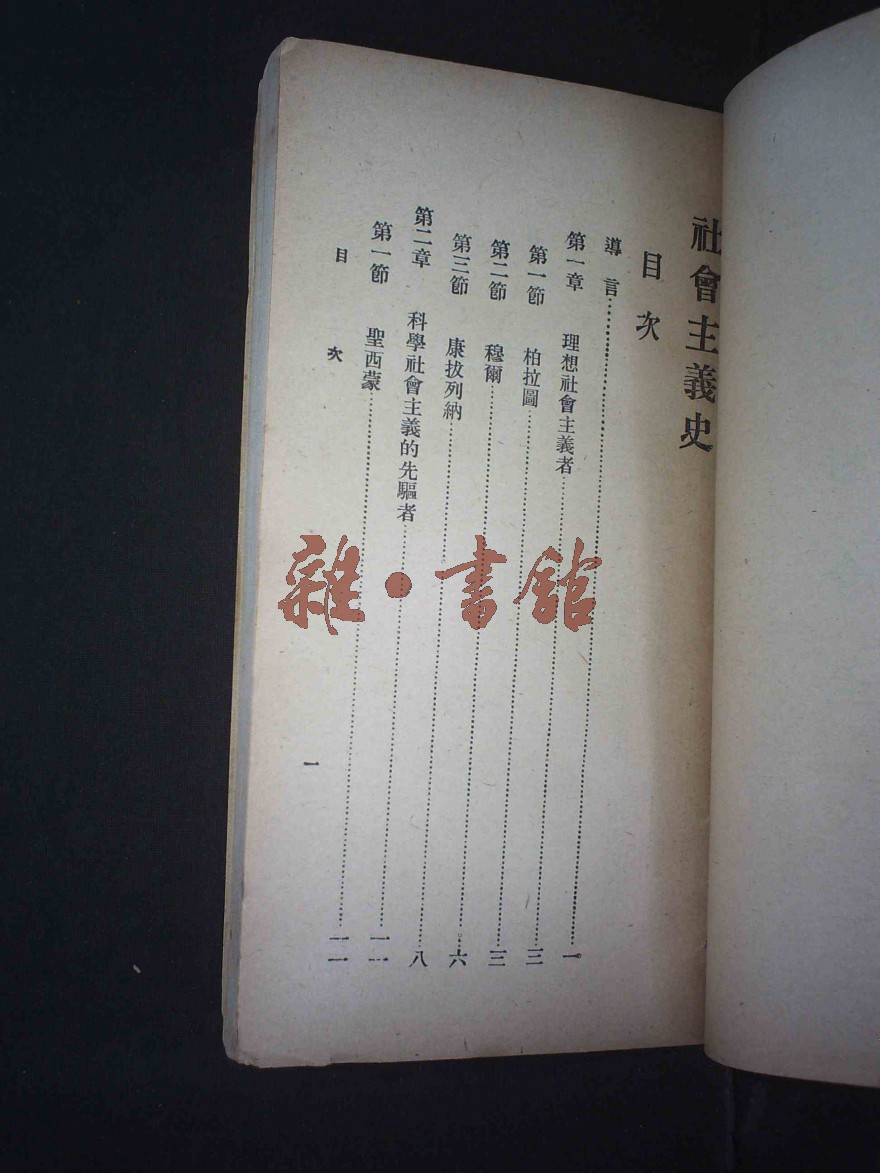 社會主義史
目次
導言……一
第一章 理想社會主義者……三
第一節 柏拉圖……三
第二節 穆爾……六
第三節 康拔列納……八
第二章 科學社會主義的先驅者……一一
第一節 聖西蒙……一一
目次 一
雜·書館